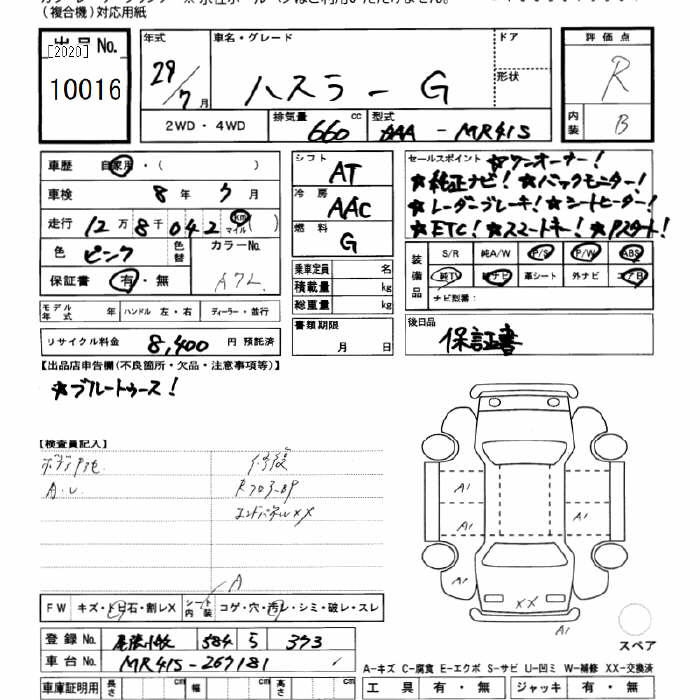 (複合機)対応用紙
出品No.
[2020]
10016
年式 車名・グレード ドア 評価点
29/7月 ハスラー G 形状 R
2WD・4WD 排気量 660 cc 型式 AAA - MR41S 内装 B
車歴 自家用・( )
車検 8年 7月
走行 12万8千042 km マイル ( )
色 ピンク 色替 カラーNo.
保証書 有・無 A7L
モデル年式 年 ハンドル 左・右 ディーラー・並行
リサイクル料金 8,400円 預託済
シフト AT
冷房 AAC
燃料 G
乗車定員 名
積載量 kg
総重量 kg
書類期限
月 日
セールスポイント ★ワンオーナー!
★純正ナビ! ★バックモニター!
★レーダーブレーキ! ★シートヒーター!
★ETC! ★スマートキー! ★Pスタート!
装備品 S/R 純A/W P/S P/W ABS
純TV 純ナビ 革シート 外ナビ エアB
ナビ種類:
後日品
保証書
【出品店申告欄(不良箇所・欠品・注意事項等)】
★ブルートゥース!
【検査員記入】
A.U 修復
エンドパネルXX
A
FW キズ・トビ石・割レX シート内装 コゲ・穴・汚レ・シミ・破レ・スレ
登録No. 尾張小牧 584 5 373
車台No. MR41S-267181
車庫証明用 長さ cm 幅 cm 高さ cm
A1
A1
A1
XX
A1
スペア
A-キズ C-腐食 E-エクボ S-サビ U-凹ミ W-補修 XX-交換済
工具 有・無 ジャッキ 有・無